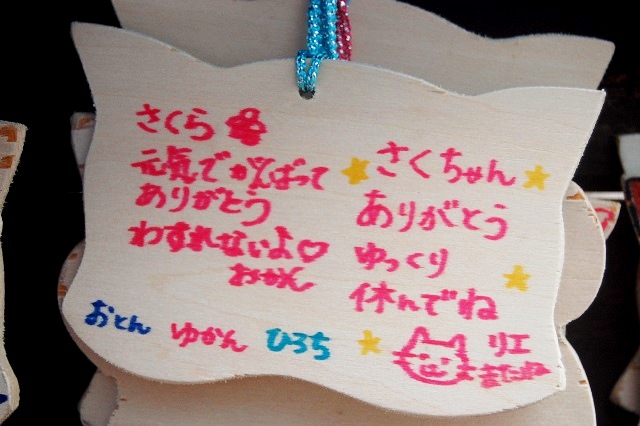 さくら
元気でがんばって
ありがとう
わすれないよ♡
おかん
さくちゃん
ありがとう
ゆっくり
休んでね
リエ
またね
おとん ゆかん ひろち